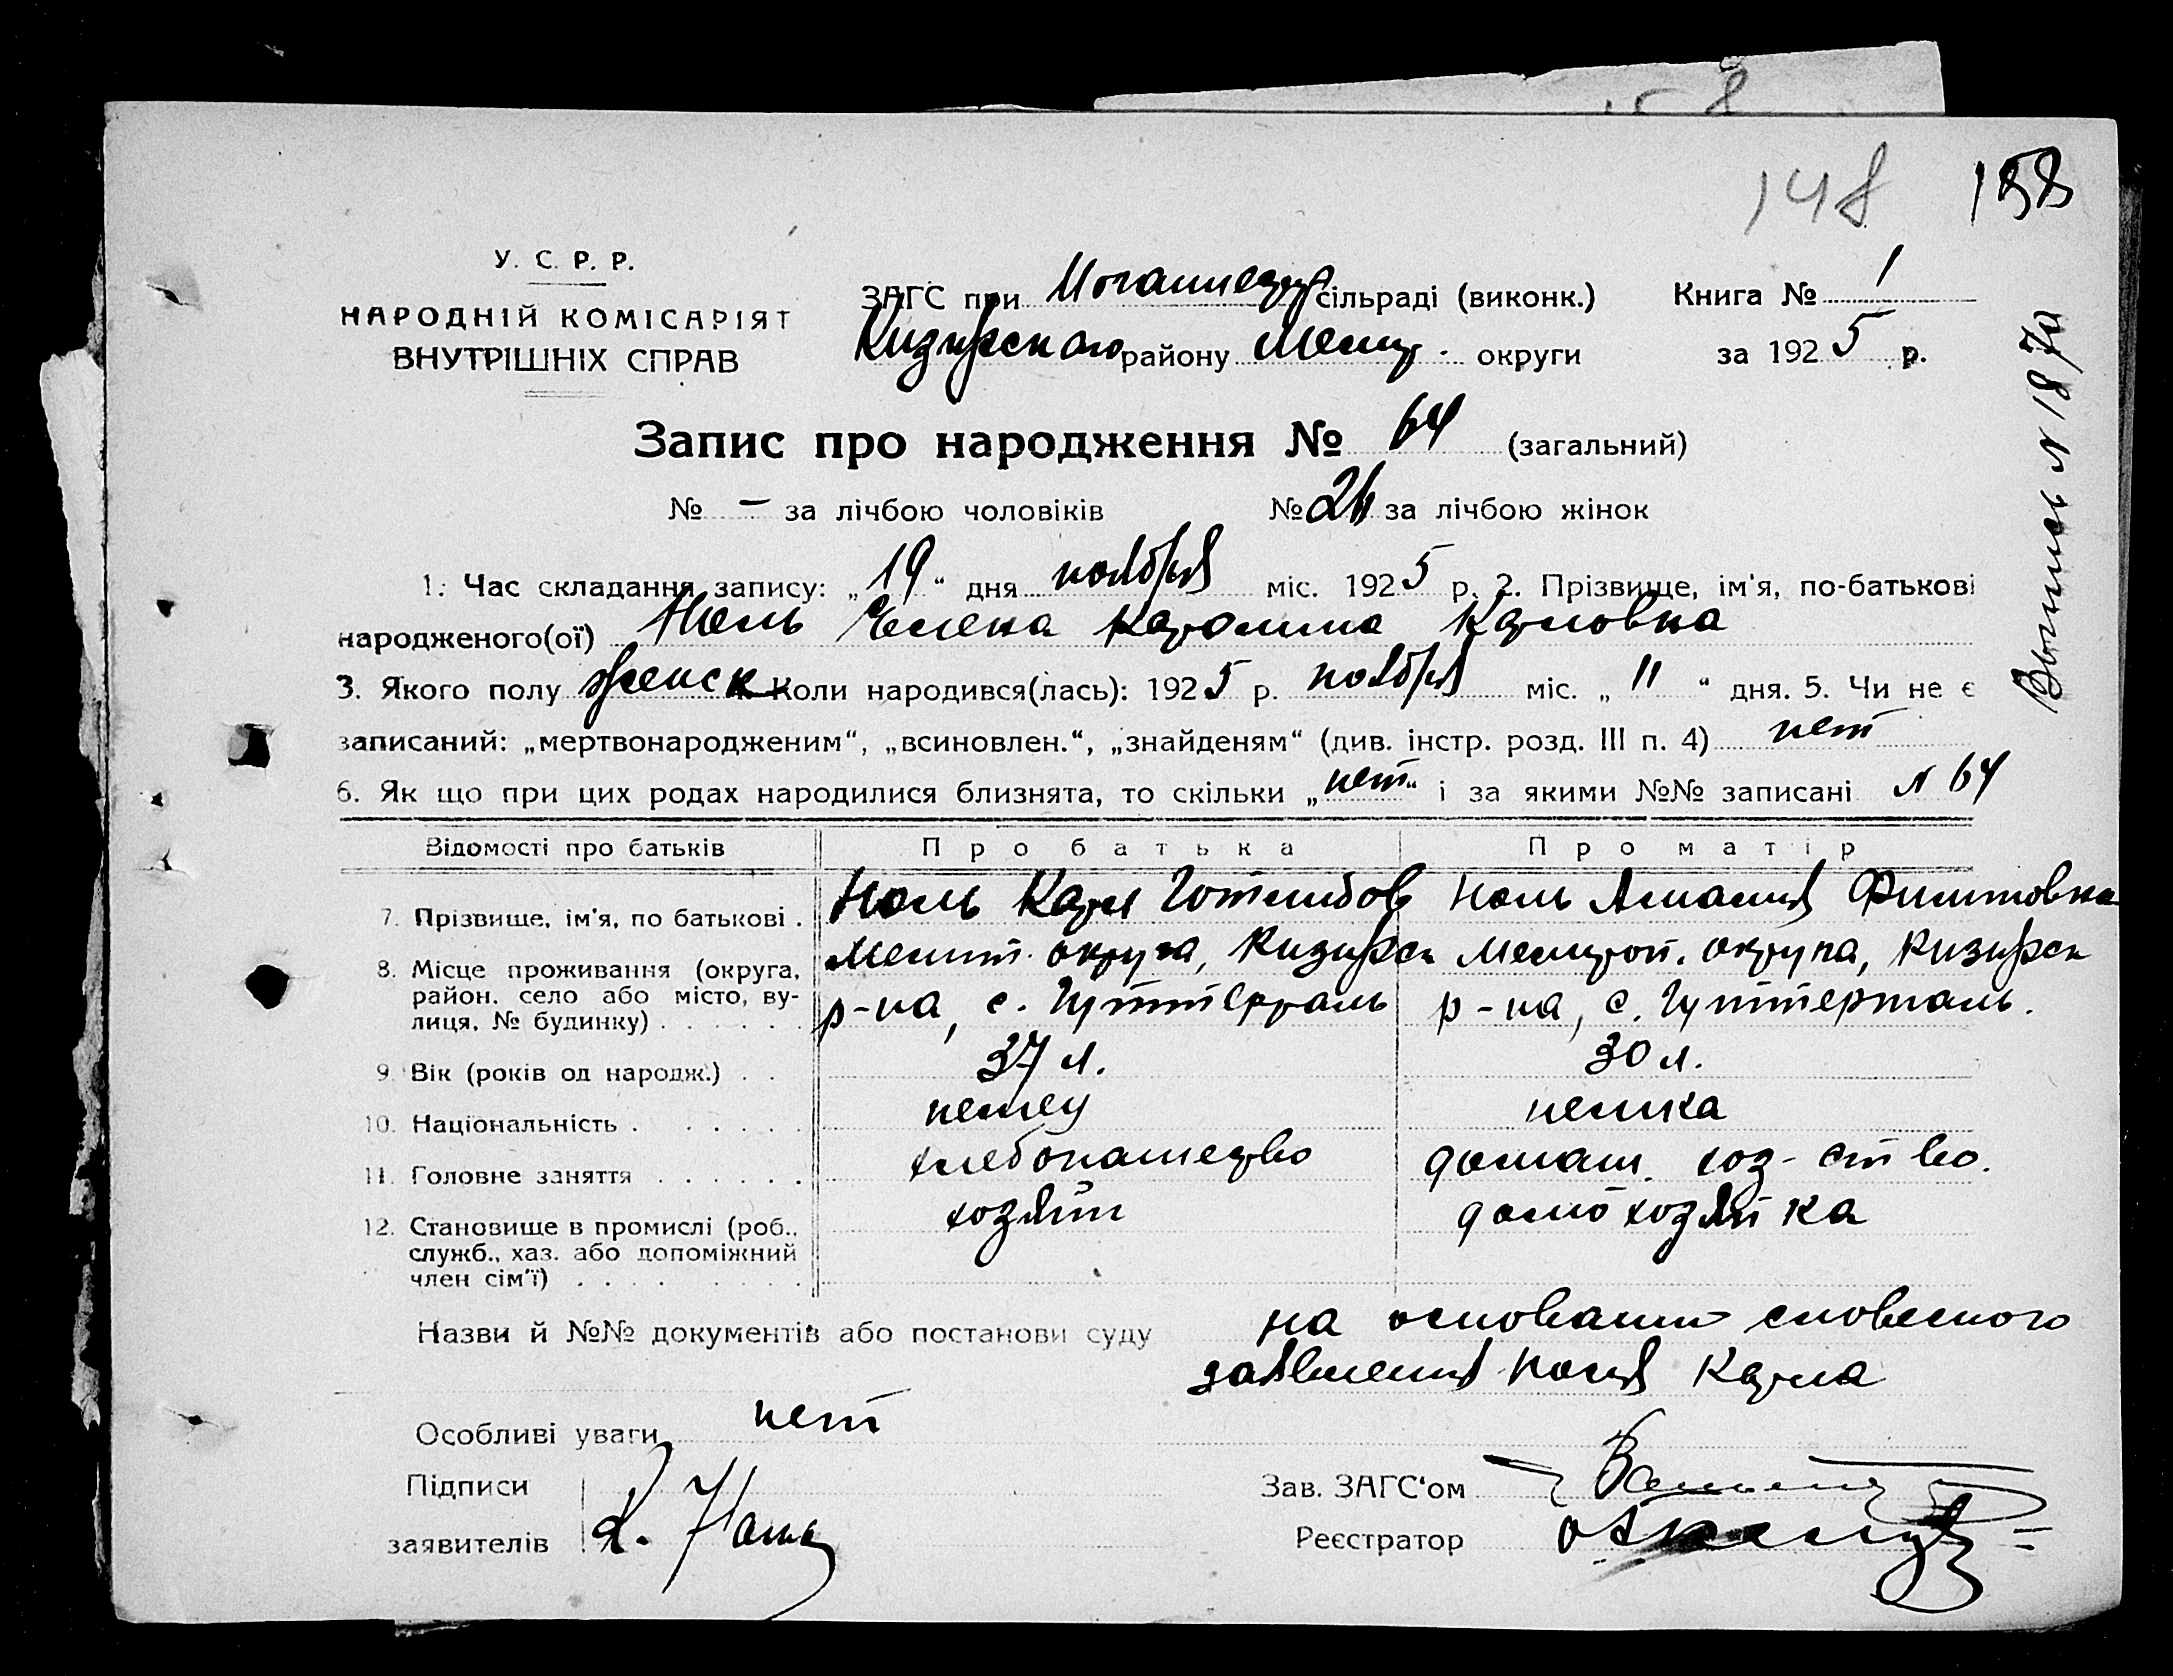 148 158
У. С. Р. Р.
НАРОДНІЙ КОМІСАРІЯТ
ВНУТРІШНІХ СПРАВ
ЗАГС при сільраді (виконк.) Книга № 1
району округи за 1925 р.
Запис про народження № 64 (загальний)
№ – за лічбою чоловіків № за лічбою жінок
1. Час складання запису: „19“ дня ноября міс. 1925 р. 2. Прізвище, ім'я, по-батькові
народженого(ої) Ноль Елена Каролина Карловна
3. Якого полу женск Коли народився(лась): 1925 р. ноября міс. „11“ дня. 5. Чи не є
записаний: „мертвонародженим“, „всиновлен.“, „знайденям“ (див. інстр. розд. III п. 4) нет
6. Як що при цих родах народилися близнята, то скільки „нет“ і за якими №№ записані N 64
Відомості про батьків Про батька Про матір
7. Прізвище, ім'я, по батькові . Ноль Карл Готлибов Ноль Амалия Филиповна
8. Місце проживання (округа, Мелит. округа, Кизирск Мелитоп. округа, Кизирск
район, село або місто, вулиця, № будинку) р-на, с. Гуттерталь р-на, с. Гуттерталь.
9. Вік (років од народж.) . . 37 л. 30 л.
10. Національність . немец немка
11. Головне заняття хлебопашество домаш. хоз-ство.
12. Становище в промислі (роб., хозяин домохозяйка
служб., хаз. або допоміжний
член сім'ї)
Назви й №№ документів або постанови суду на основании словесного
заявления Ноля Карла
Особливі уваги нет
Підписи Зав. ЗАГС'ом
заявителів Реєстратор
Выпись N 1870